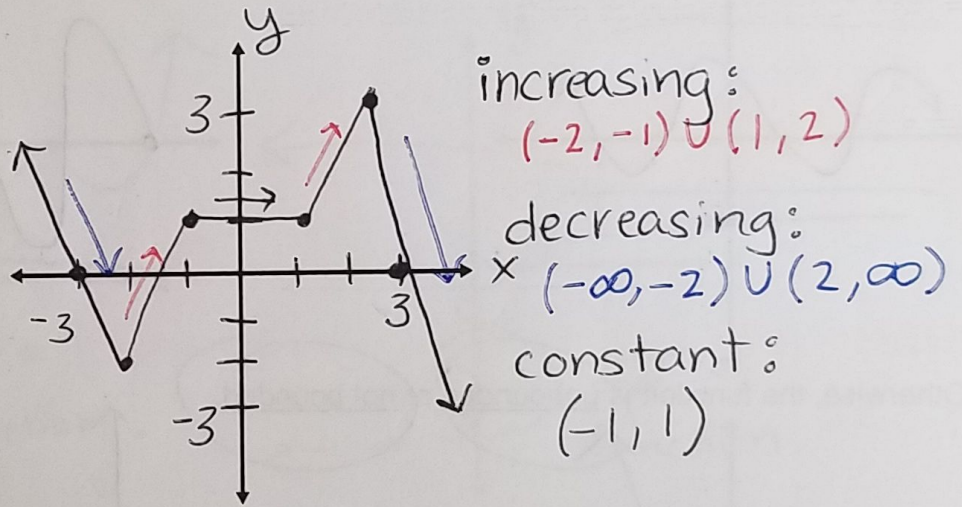 y
3
-3
3
-3
x
increasing:
(-2,-1)∪(1,2)
decreasing:
(-∞,-2)∪(2,∞)
constant:
(-1,1)